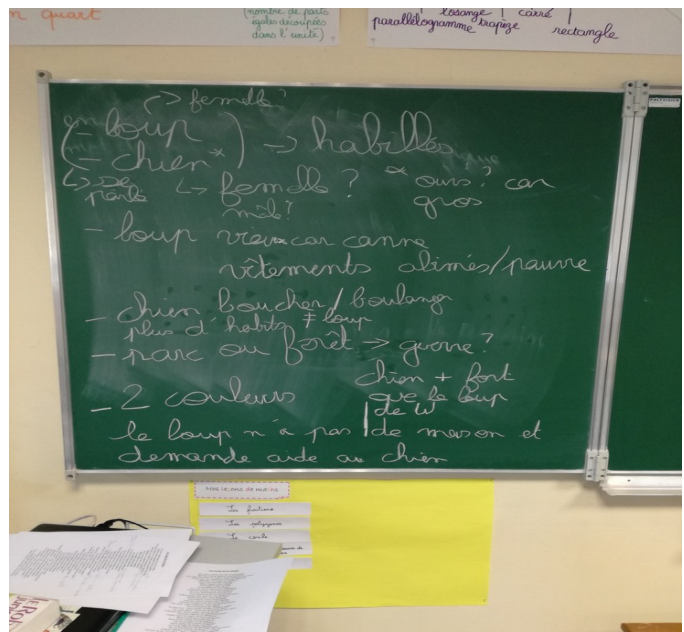 n quart
(nombre de parts
égales découpées
dans l'unité)
losange carré
parallélogramme trapèze rectangle
↳> femelle ?
- loup
- chien* ) -> habillés
↳ se parle
↳ femelle ?
mâle ?
* ours ? car
gros
- loup vieux car canne
vêtements abimés/pauvre
- chien boucher/boulanger
plus d'habits ≠ loup
- parc ou forêt -> guerre ?
- 2 couleurs
chien + fort
que le loup
le loup n'a pas | de W
| de maison et
demande aide au chien
Nos leçons de maths
Les fractions
Les polygones
Le cercle